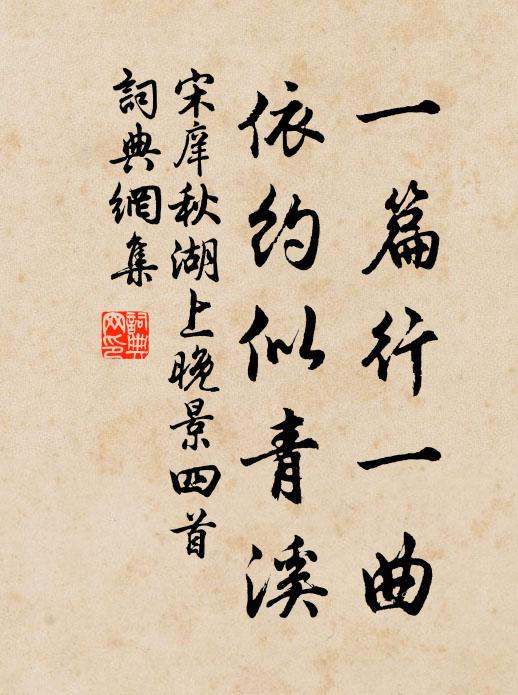 一篇行一曲
依約似青溪
宋庠秋湖上晚景四首
詞典網集
詞典
网印